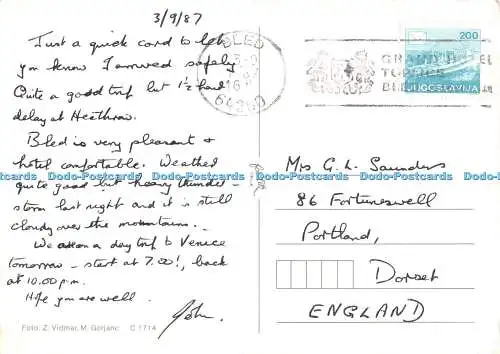 3/9/87
Just a quick card to let
you know I arrived safely
Quite a good trip but 1½ hour
delay at Heathrow.
Bled is very pleasant &
hotel comfortable. Weather
quite good but heavy thunder-
storm last night and it is still
cloudy over the mountains.
We are on a day trip to Venice
tomorrow - start at 7.00!, back
at 10.00 p.m.
Hope you are well.
John.
Foto: Z. Vidmar, M. Gorjanc C 1714
BLED
64260
GRAND HOTEL
TOPLICE
BLED
200
JUGOSLAVIJA
Mrs G. L. Saunders
86 Fortuneswell
Portland,
Dorset
ENGLAND
Dodo-Postcards Dodo-Postcards Dodo-Postcards Dodo-Postcards Dodo-Postcards